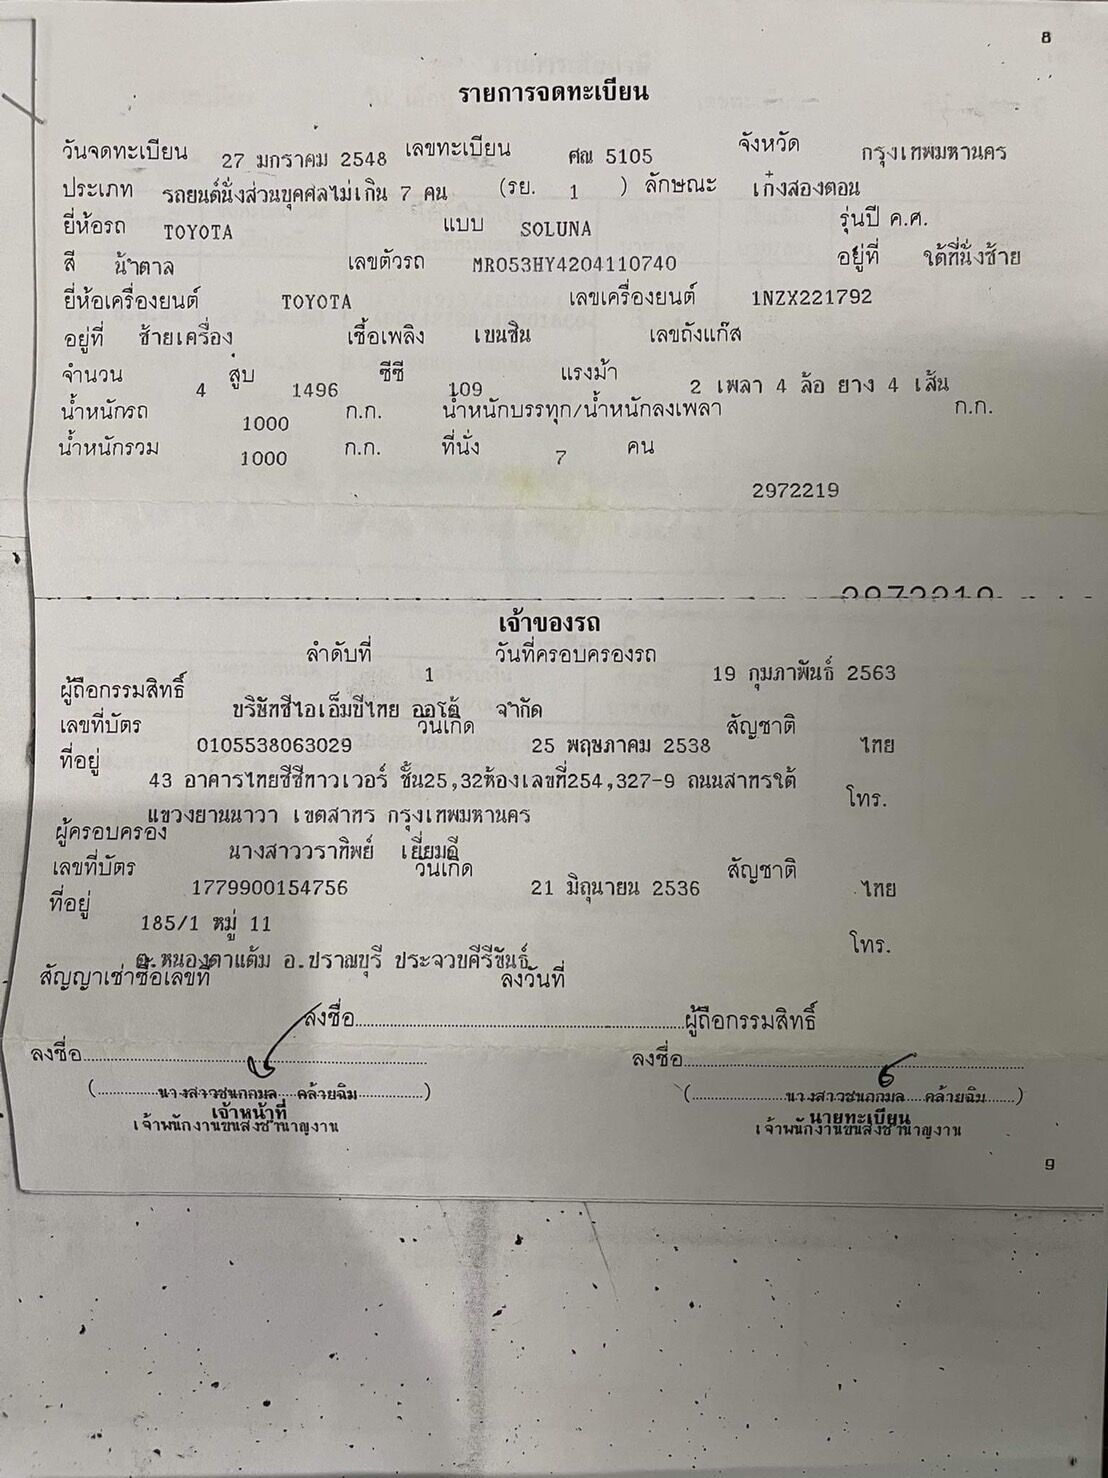 8
รายการจดทะเบียน
วันจดทะเบียน 27 มกราคม 2548 เลขทะเบียน ศณ 5105 จังหวัด กรุงเทพมหานคร
ประเภท รถยนต์นั่งส่วนบุคคลไม่เกิน 7 คน (รย. 1 ) ลักษณะ เก๋งสองตอน
ยี่ห้อรถ TOYOTA แบบ SOLUNA รุ่นปี ค.ศ.
สี น้ำตาล เลขตัวรถ MR053HY4204110740 อยู่ที่ ใต้ที่นั่งซ้าย
ยี่ห้อเครื่องยนต์ TOYOTA เลขเครื่องยนต์ 1NZX221792
อยู่ที่ ซ้ายเครื่อง เชื้อเพลิง เบนซิน เลขถังแก๊ส
จำนวน 4 สูบ 1496 ซีซี 109 แรงม้า 2 เพลา 4 ล้อ ยาง 4 เส้น
น้ำหนักรถ 1000 ก.ก. น้ำหนักบรรทุก/น้ำหนักลงเพลา ก.ก.
น้ำหนักรวม 1000 ก.ก. ที่นั่ง 7 คน
2972219
2972219
เจ้าของรถ
ลำดับที่ 1 วันที่ครอบครองรถ 19 กุมภาพันธ์ 2563
ผู้ถือกรรมสิทธิ์ บริษัทซีไอเอ็มบีไทย ออโต้ จำกัด
เลขที่บัตร 0105538063029 วันเกิด 25 พฤษภาคม 2538 สัญชาติ ไทย
ที่อยู่ 43 อาคารไทยซีซีทาวเวอร์ ชั้น25,32ห้องเลขที่254,327-9 ถนนสาทรใต้
แขวงยานนาวา เขตสาทร กรุงเทพมหานคร โทร.
ผู้ครอบครอง นางสาววราทิพย์ เยี่ยมดี
เลขที่บัตร 1779900154756 วันเกิด 21 มิถุนายน 2536 สัญชาติ ไทย
ที่อยู่ 185/1 หมู่ 11
ต.หนองตาแต้ม อ.ปราณบุรี ประจวบคีรีขันธ์ โทร.
สัญญาเช่าซื้อเลขที่ ลงวันที่
ลงชื่อ ผู้ถือกรรมสิทธิ์
ลงชื่อ ลงชื่อ
(นางสาวชนกกมล คล้ายฉิม) (นางสาวชนกกมล คล้ายฉิม)
เจ้าหน้าที่ นายทะเบียน
เจ้าพนักงานขนส่งชำนาญงาน เจ้าพนักงานขนส่งชำนาญงาน
9